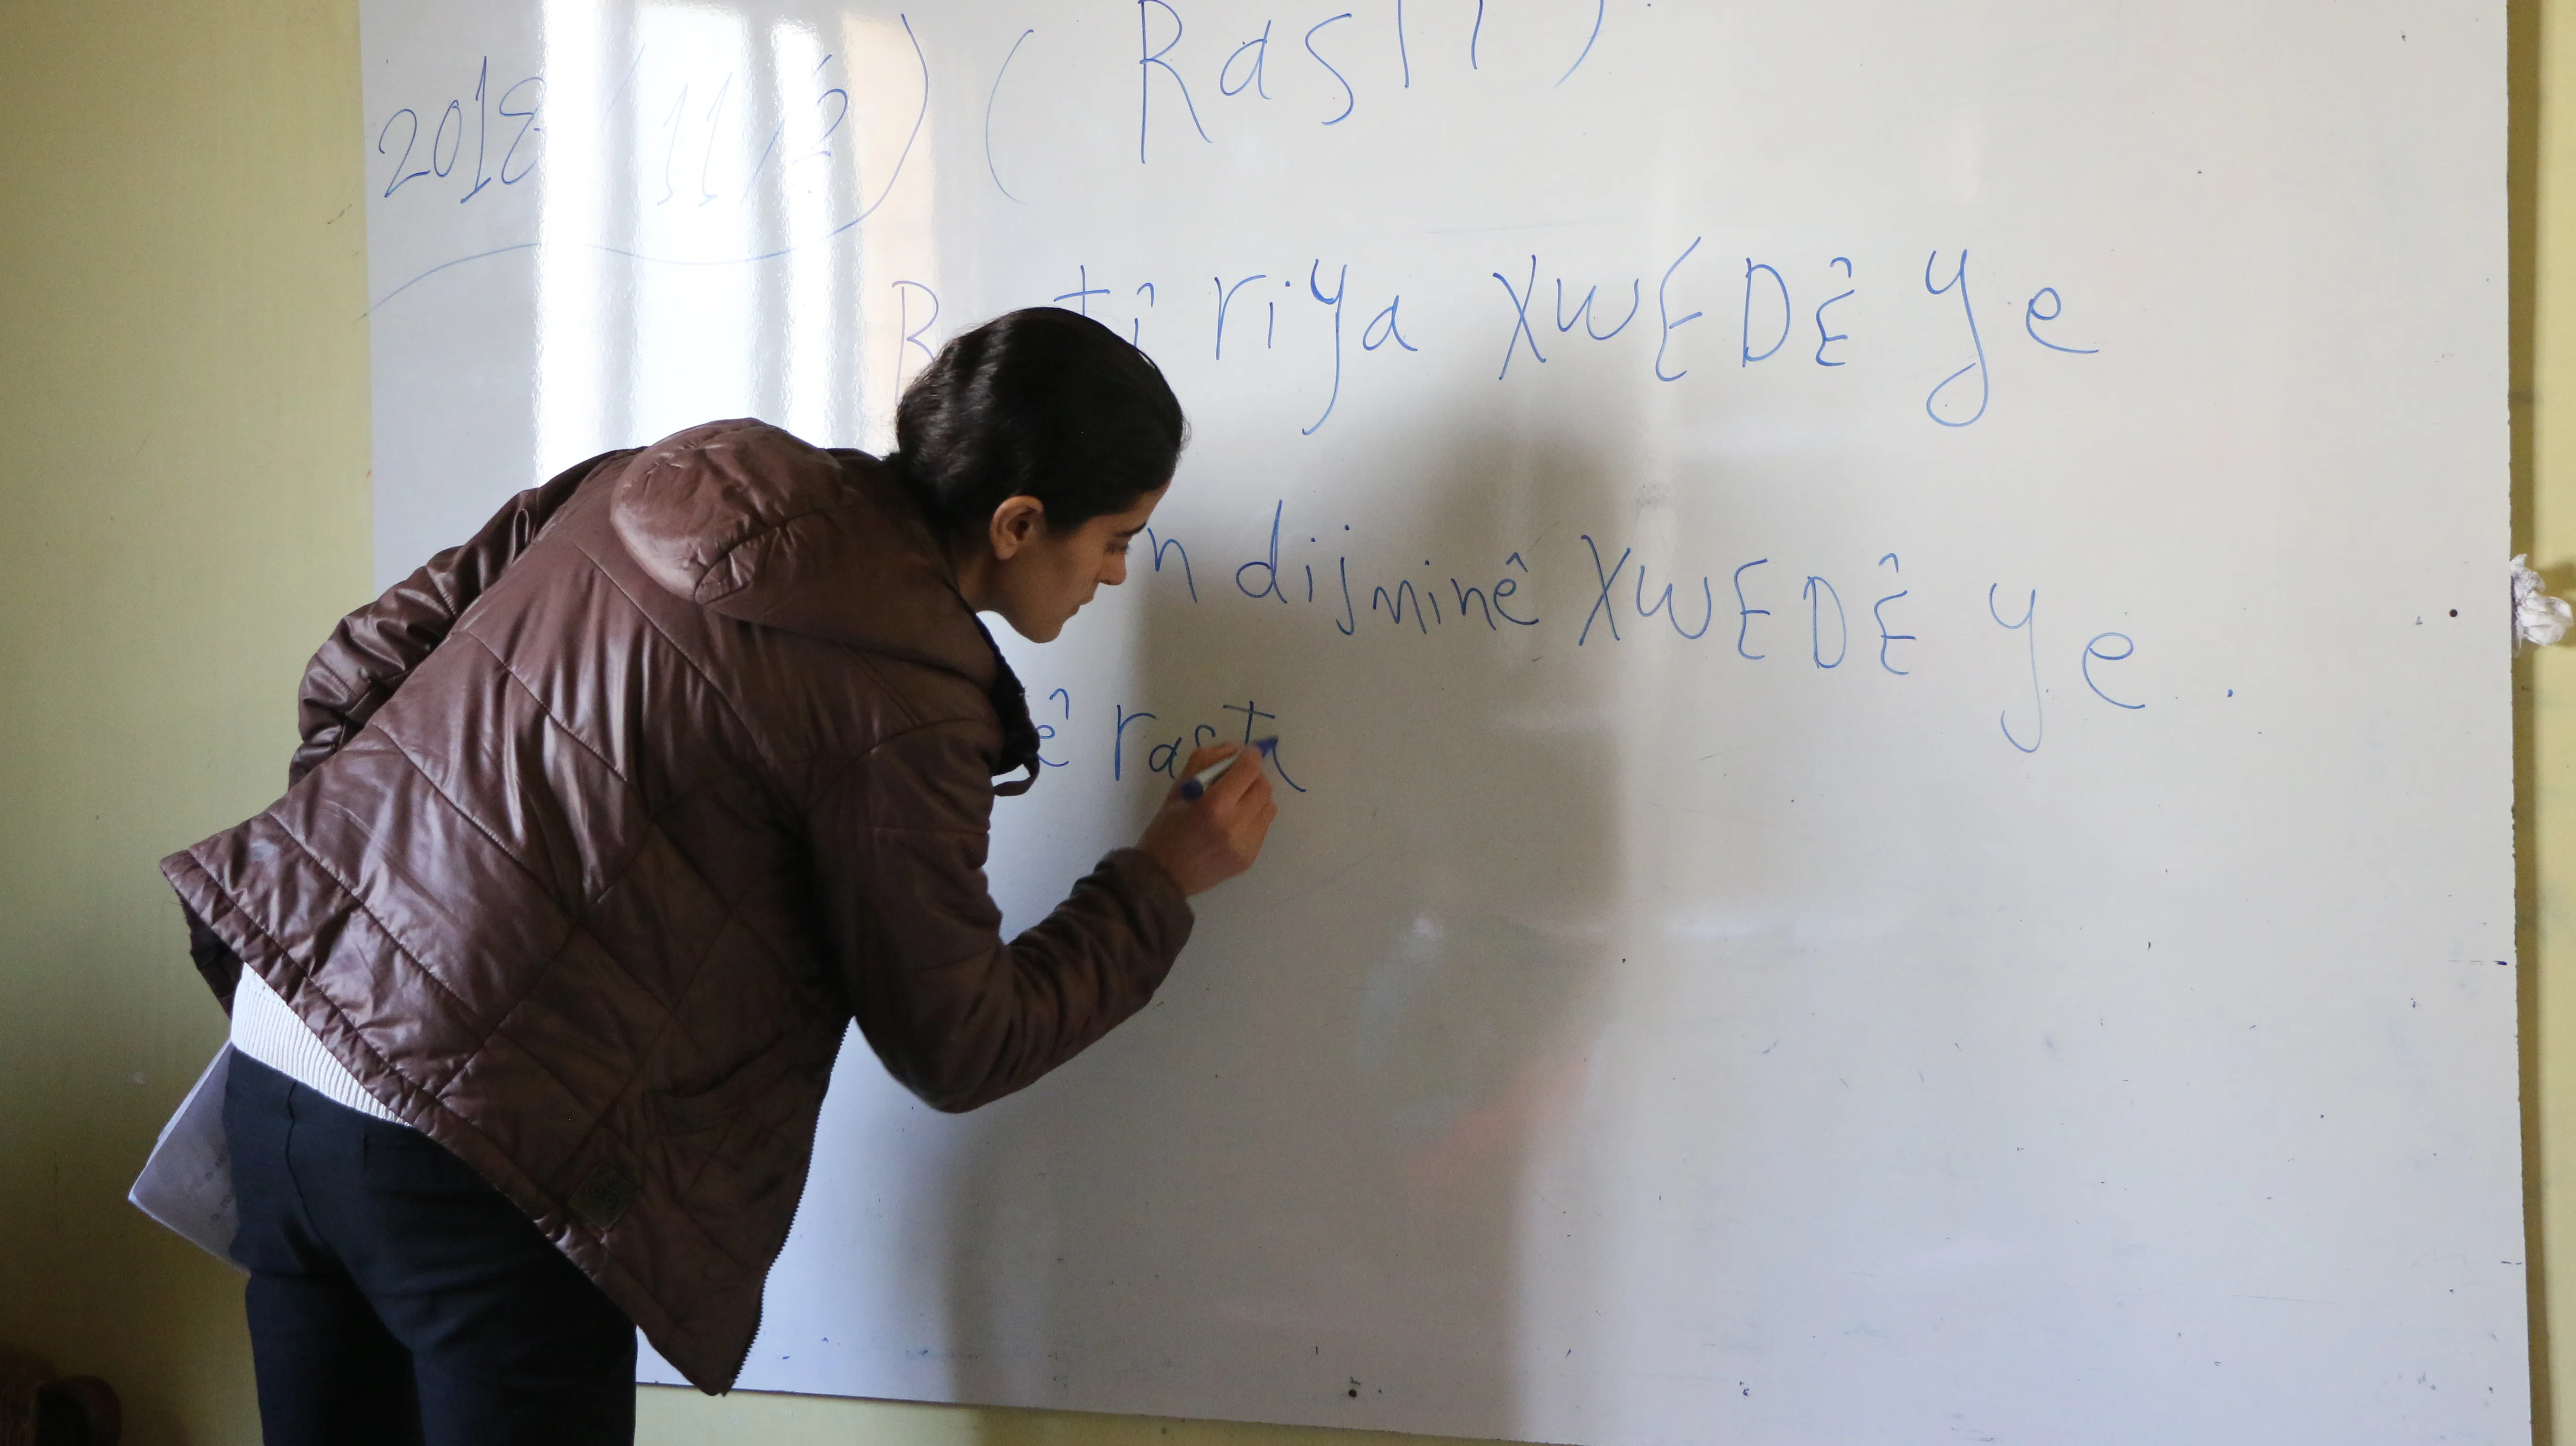 2018/11/2) (Rastî)
riya XWEDÊ ye
dijminê XWEDÊ ye.
rast